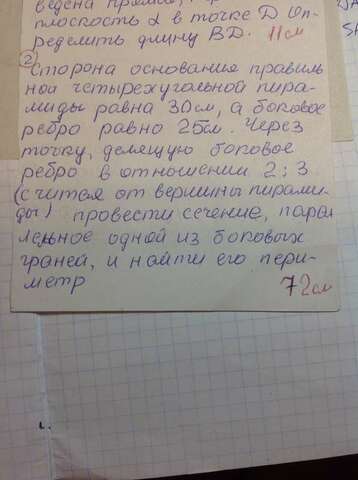 плоскость α в точке D Оп-
ределить длину BD. 11см
2
Сторона основания правиль
ной четырехугольной пира-
миды равна 30см, а боковое
ребро равно 25см. Через
точку, делящую боковое
ребро в отношении 2:3
(считая от вершины пирами-
ды) провести сечение, парал
лельное одной из боковых
граней, и найти его пери-
метр 72см